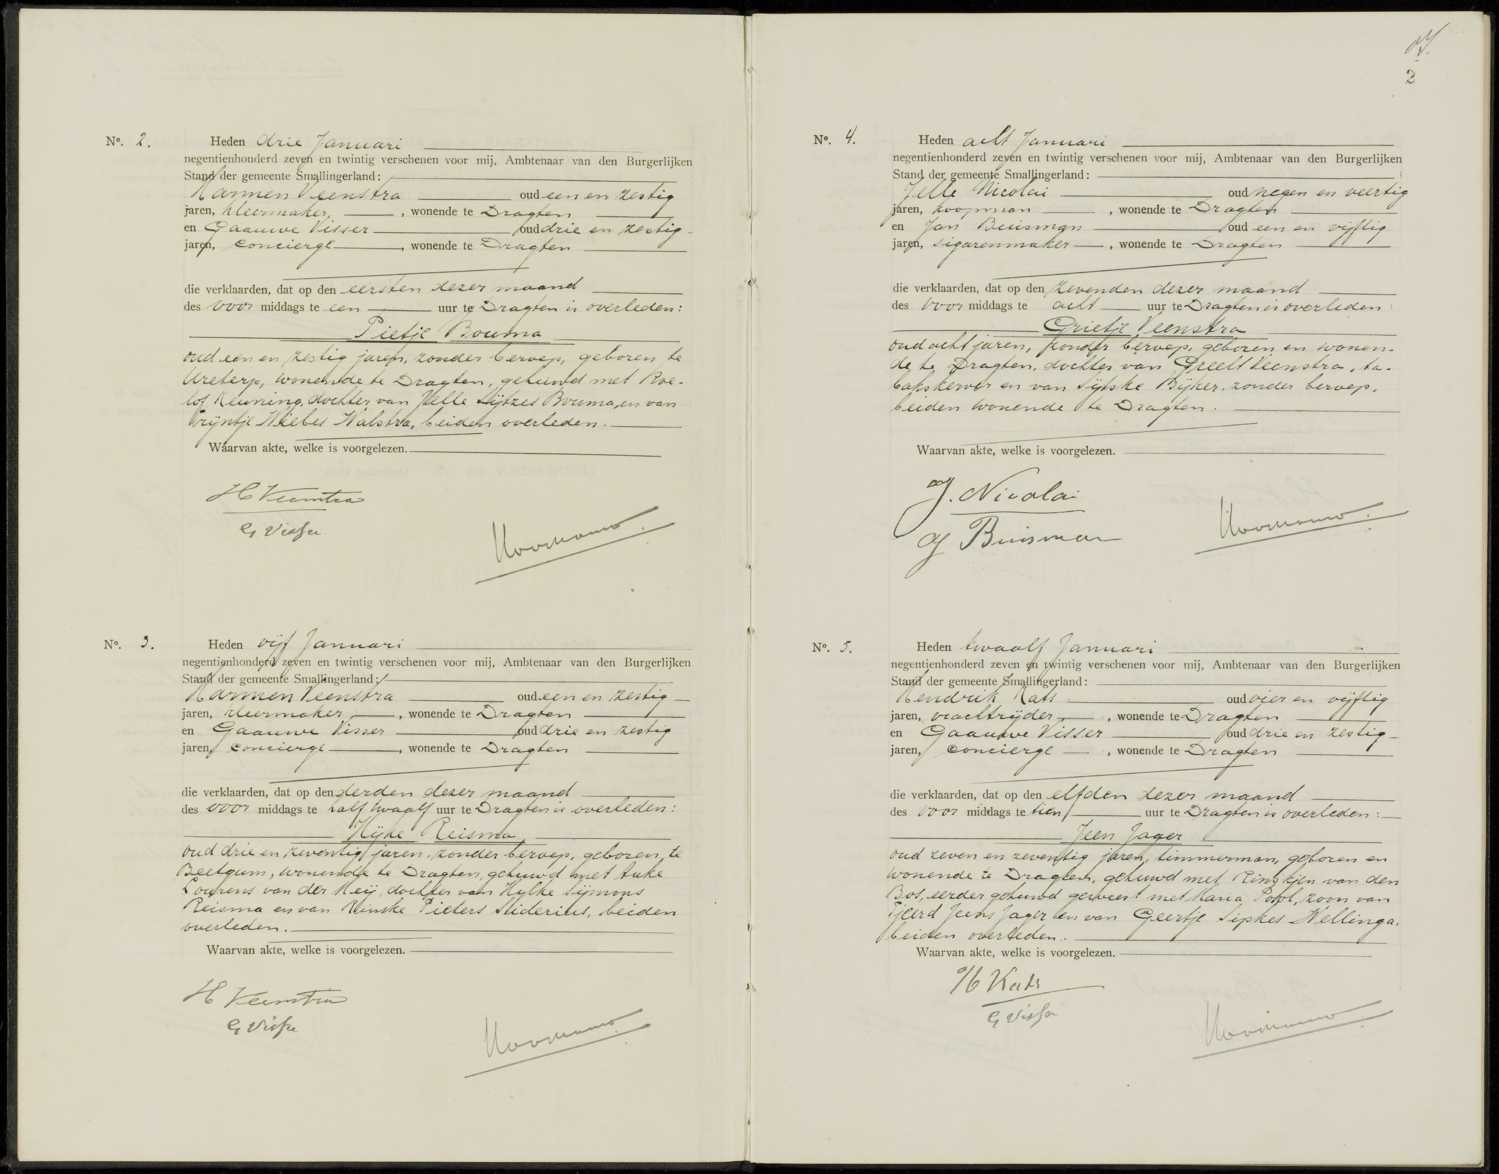 No. 2. Heden drie Januari
negentienhonderd zeven en twintig verschenen voor mij, Ambtenaar van den Burgerlijken
Stand der gemeente Smallingerland:
Harmen Veenstra oud een en zestig
jaren, kleermaker, , wonende te Dragten
en Gaauwe Visser oud drie en zestig
jaren, concierge , wonende te Dragten
die verklaarden, dat op den eersten dezer maand
des voor middags te een uur te Dragten is overleden:
Pietje Bouma
oud een en zestig jaren, zonder beroep, geboren te
Ureterp, wonende te Dragten, gehuwd met Roe-
lof Kluning, dochter van Helle Sijtzes Bouma, en van
Trijntje Wiebes Walstra, beiden overleden.
Waarvan akte, welke is voorgelezen.
H Veenstra
G Visser
No. 3. Heden vijf Januari
negentienhonderd zeven en twintig verschenen voor mij, Ambtenaar van den Burgerlijken
Stand der gemeente Smallingerland:
Harmen Veenstra oud een en zestig
jaren, kleermaker, , wonende te Dragten
en Gaauwe Visser oud drie en zestig
jaren, concierge , wonende te Dragten
die verklaarden, dat op den derden dezer maand
des voor middags te half twaalf uur te Dragten is overleden:
Hijke Reisma
oud drie en zeventig jaren, zonder beroep, geboren te
Beetgum, wonende te Dragten, gehuwd met Auke
Lourens van der Meij, dochter van Hylke Sijmons
Reisma en van Minske Pieters Sliderius, beiden
overleden.
Waarvan akte, welke is voorgelezen.
H Veenstra
G Visser
2
No. 4. Heden acht Januari
negentienhonderd zeven en twintig verschenen voor mij, Ambtenaar van den Burgerlijken
Stand der gemeente Smallingerland:
Jelle Nicolai oud negen en veertig
jaren, koopman , wonende te Dragten
en Jan Buisman oud een en vijftig
jaren, sigarenmaker , wonende te Dragten
die verklaarden, dat op den zevenden dezer maand
des voor middags te acht uur te Dragten is overleden:
Grietje Veenstra
oud acht jaren, zonder beroep, geboren en wonen-
de te Dragten, dochter van Geert Veenstra, ta-
bakskerver en van Sijtske Bijker, zonder beroep,
beiden wonende te Dragten.
Waarvan akte, welke is voorgelezen.
J. Nicolai
J Buisman
No. 5. Heden twaalf Januari
negentienhonderd zeven en twintig verschenen voor mij, Ambtenaar van den Burgerlijken
Stand der gemeente Smallingerland:
Hendrik Kats oud vier en vijftig
jaren, vrachtrijder, , wonende te Dragten
en Gaauwe Visser oud drie en zestig
jaren, concierge , wonende te Dragten
die verklaarden, dat op den elfden dezer maand
des voor middags te tien uur te Dragten is overleden:
Jeen Jager
oud zeven en zeventig jaren, timmerman, geboren en
wonende te Dragten, gehuwd met Rinskjen van den
Bos, eerder gehuwd geweest met Maria Pool, zoon van
Tjeerd Jeens Jager en van Geertje Sipkes Wellinga,
beiden overleden.
Waarvan akte, welke is voorgelezen.
H Kats
G Visser